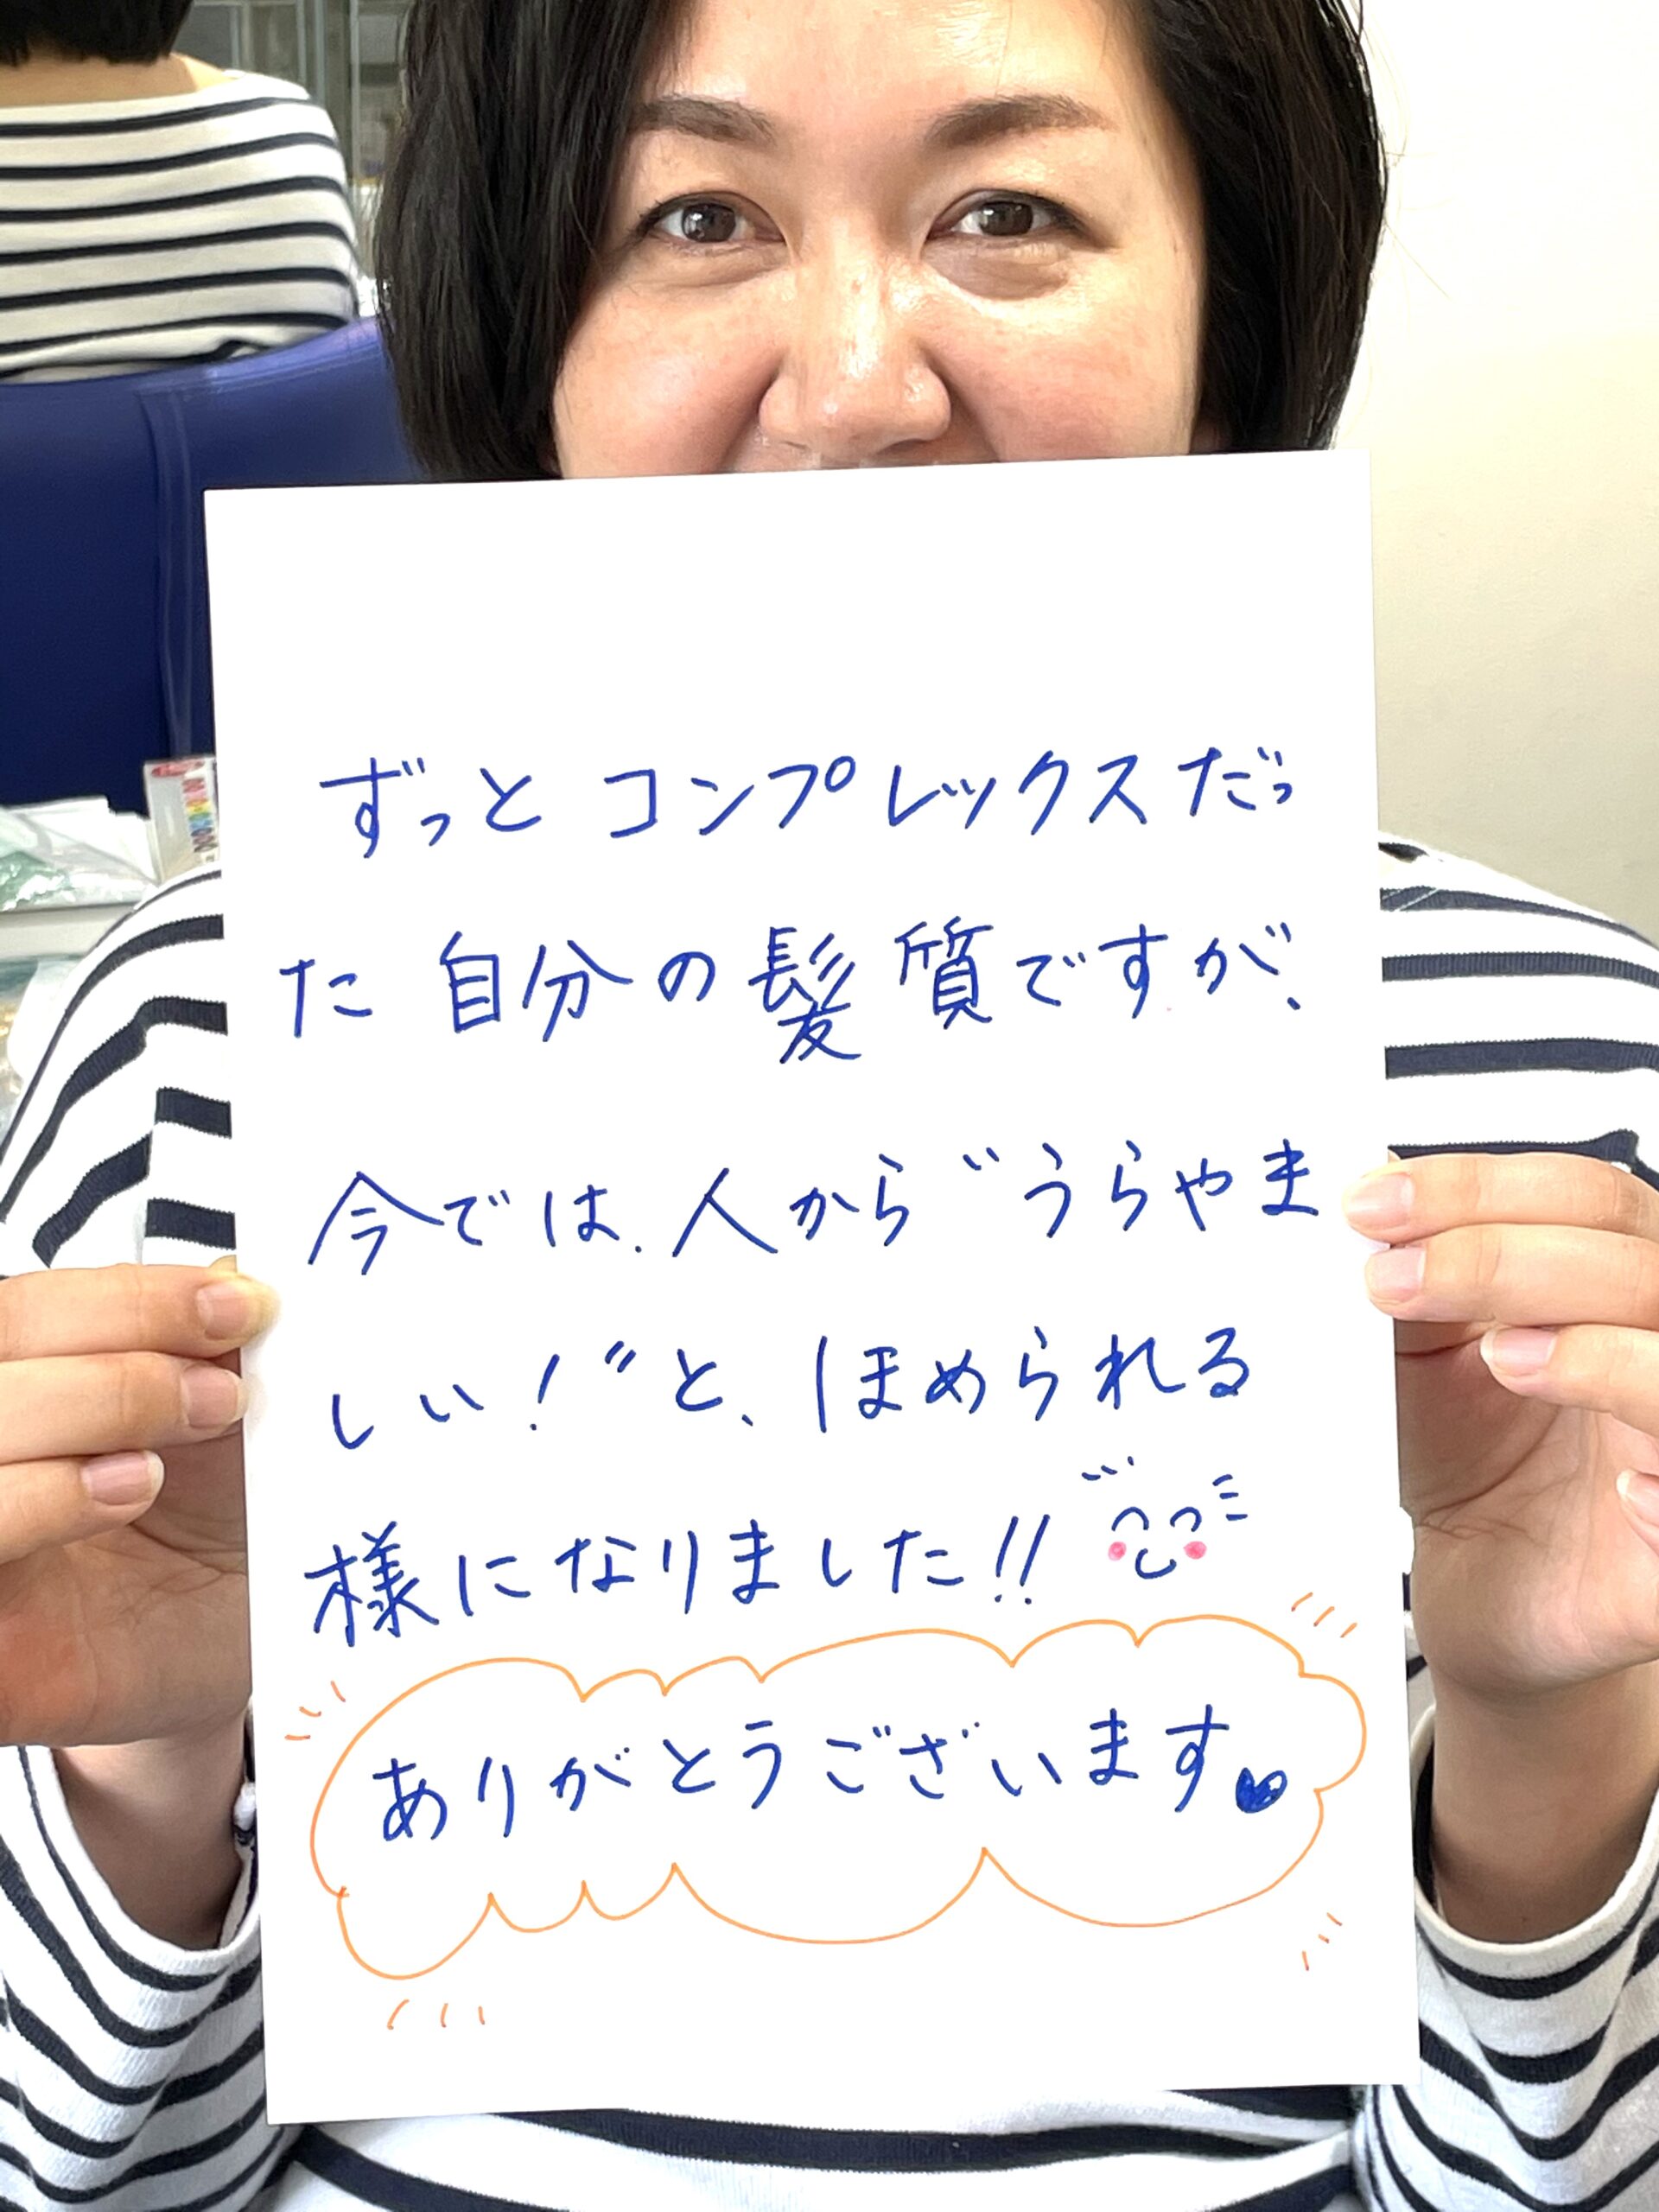 ずっとコンプレックスだっ
た自分の髪質ですが、
今では、人から〝うらやま
しい！〞と、ほめられる
様になりました!!
ありがとうございます